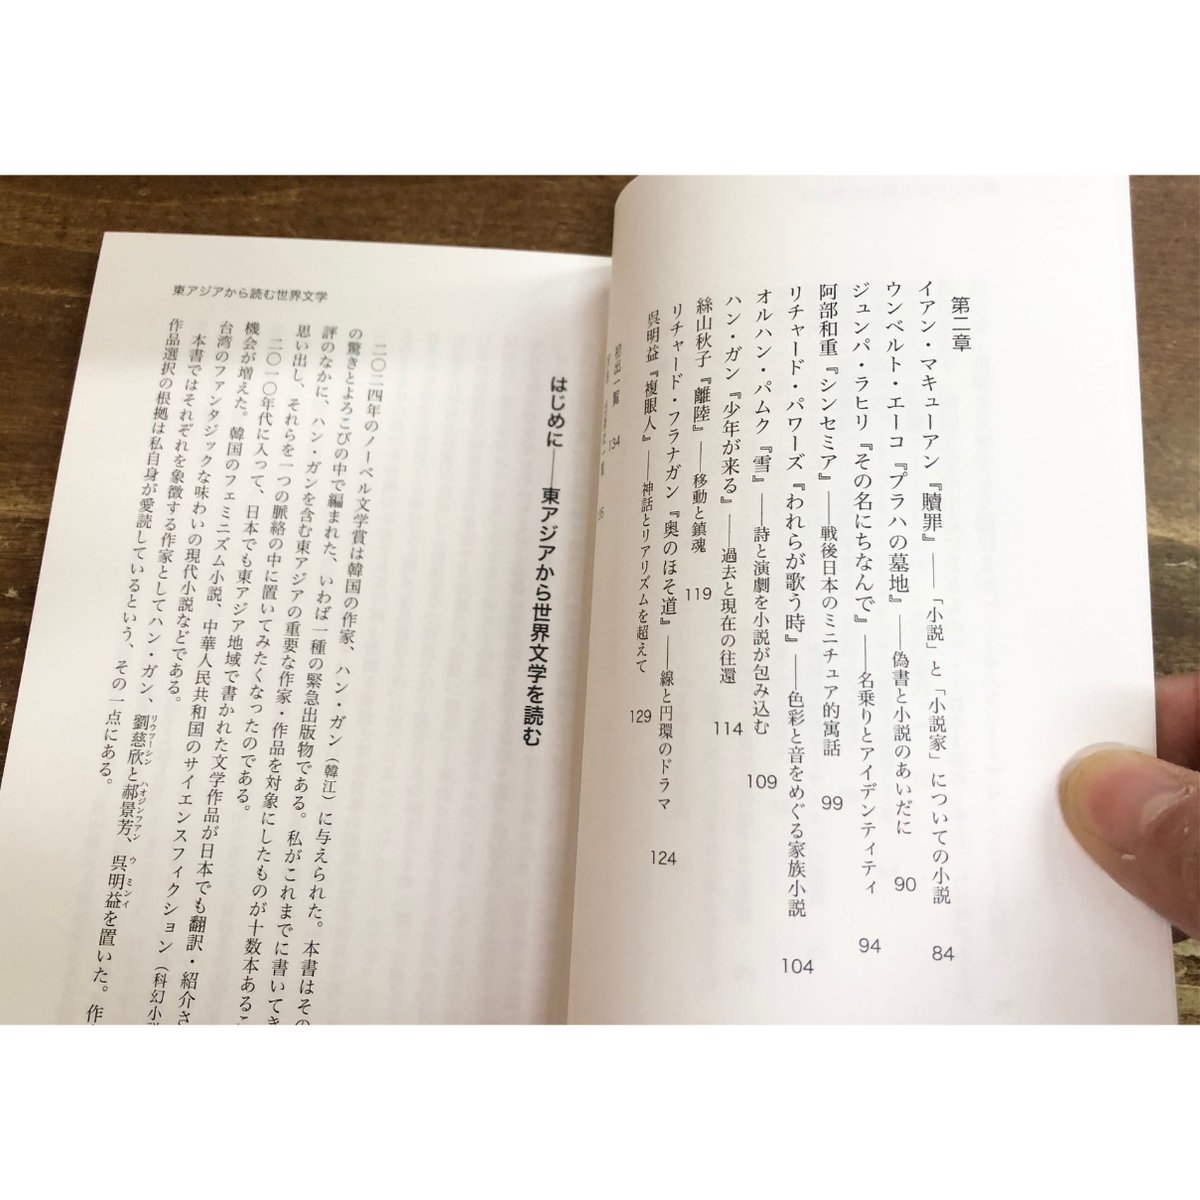 第二章
イアン・マキューアン『贖罪』――「小説」と「小説家」についての小説 84
ウンベルト・エーコ『プラハの墓地』――偽書と小説のあいだに 90
ジュンパ・ラヒリ『その名にちなんで』――名乗りとアイデンティティ 94
阿部和重『シンセミア』――戦後日本のミニチュア的寓話 99
リチャード・パワーズ『われらが歌う時』――色彩と音をめぐる家族小説 104
オルハン・パムク『雪』――詩と演劇を小説が包み込む 109
ハン・ガン『少年が来る』――過去と現在の往還 114
絲山秋子『離陸』――移動と鎮魂 119
リチャード・フラナガン『奥のほそ道』――線と円環のドラマ 124
呉明益『複眼人』――神話とリアリズムを超えて 129
初出一覧 134
東アジアから読む世界文学
はじめに――東アジアから世界文学を読む
二〇二四年のノーベル文学賞は韓国の作家、ハン・ガン（韓江）に与えられた。本書はその
の驚きとよろこびの中で編まれた、いわば一種の緊急出版物である。私がこれまでに書いてき
評のなかに、ハン・ガンを含む東アジアの重要な作家・作品を対象にしたものが十数本あるこ
思い出し、それらを一つの脈絡の中に置いてみたくなったのである。
二〇一〇年代に入って、日本でも東アジア地域で書かれた文学作品が日本でも翻訳・紹介さ
機会が増えた。韓国のフェミニズム小説、中華人民共和国のサイエンスフィクション（科幻小
台湾のファンタジックな味わいの現代小説などである。
本書ではそれぞれを象徴する作家としてハン・ガン、劉慈欣と郝景芳、呉明益を置いた。作
リウツーシン ハオジンファン ウ ミンイ
作品選択の根拠は私自身が愛読しているという、その一点にある。